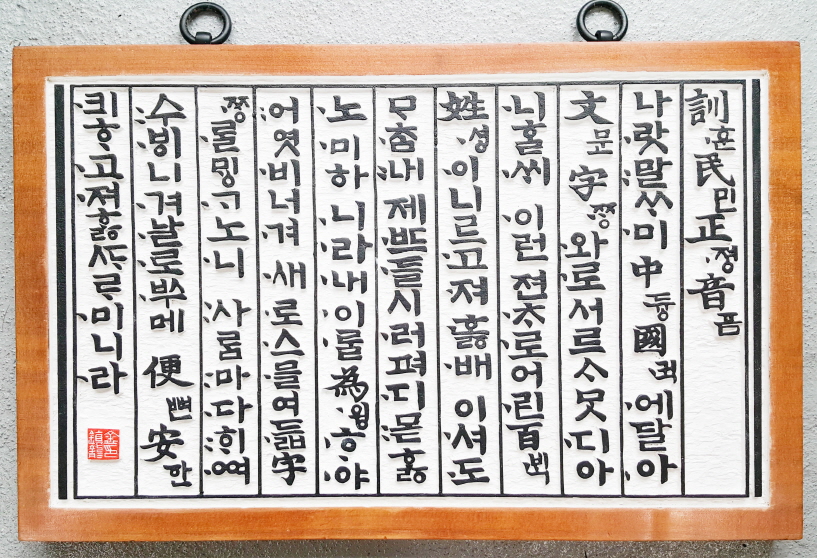 訓훈民민正졍音ᅙᅳᆷ
나랏말ᄊᆞ미 中듕國귁에달아
文문字ᄍᆞᆼ와로서르ᄉᆞᄆᆞᆺ디아
니ᄒᆞᆯᄊᆡ 이런젼ᄎᆞ로어린百ᄇᆡᆨ
姓셩이니르고져ᄒᆞᇙ배 이셔도
ᄆᆞᄎᆞᆷ내 제ᄠᅳ들시러펴디몯ᄒᆞᇙ
노미하니라내이ᄅᆞᆯ為윙ᄒᆞ야
어엿비너겨 새로스믈여듧字
ᄍᆞᆼᄅᆞᆯᄆᆡᇰᄀᆞ노니 사ᄅᆞᆷ마다ᄒᆡᅇᅧ
수ᄫᅵ니겨날로ᄡᅮ메 便뼌安ᅙᅡᆫ
킈ᄒᆞ고져ᄒᆞᇙᄯᆞᄅᆞ미니라